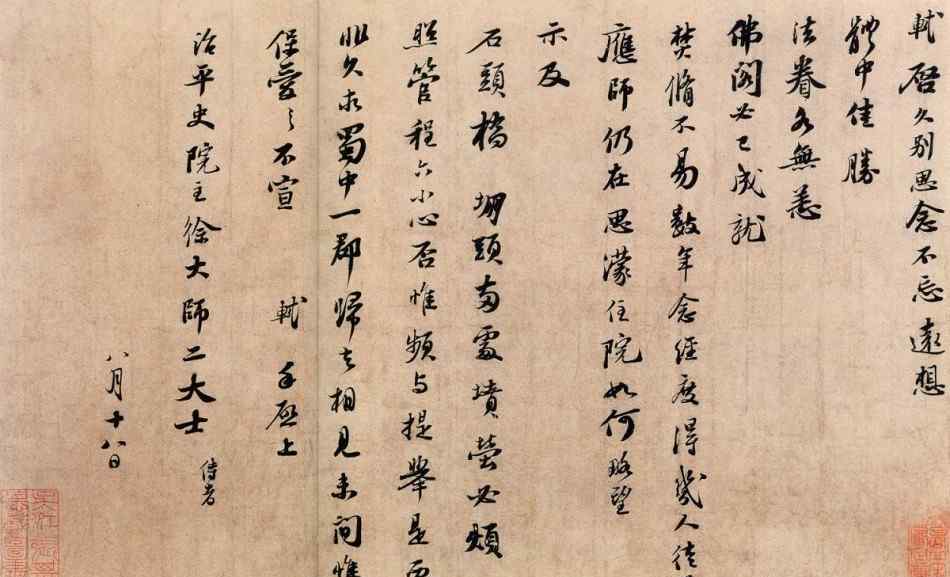 軾啓久別思念不忘遠想
體中佳勝
法眷各無恙
佛閣必已成就
焚脩不易數年念經度得幾人徒
應師仍在思濛住院如何略望
示及
石頭橋 堋頭兩處墳塋必煩
照管程六小心否惟頻與提舉是
非久求蜀中一郡歸去相見未間惟
保愛之不宣 軾手啓上
治平史院主徐大師二大士 侍者
八月十八日